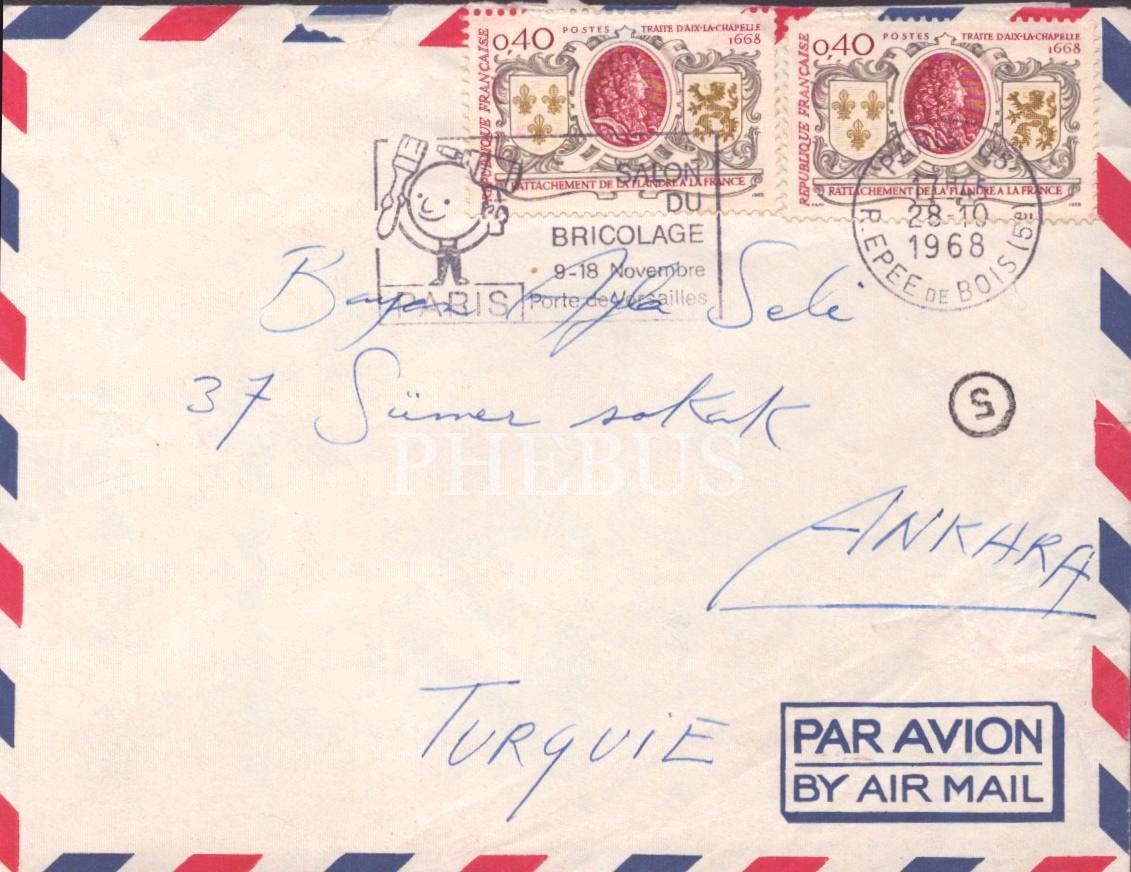 0,40 POSTES TRAITE D'AIX-LA-CHAPELLE
1668
REPUBLIQUE FRANCAISE
RATTACHEMENT DE LA FLANDRE A LA FRANCE
0,40 POSTES TRAITE D'AIX-LA-CHAPELLE
1668
REPUBLIQUE FRANCAISE
RATTACHEMENT DE LA FLANDRE A LA FRANCE
SALON
DU
BRICOLAGE
9-18 Novembre
Porte de Versailles
PARIS
PARIS
28-10
1968
R. EPEE DE BOIS (5e)
Bayan Seli
37 Sümer sokak
5
PHEBUS
ANKARA
TURQUIE
PAR AVION
BY AIR MAIL